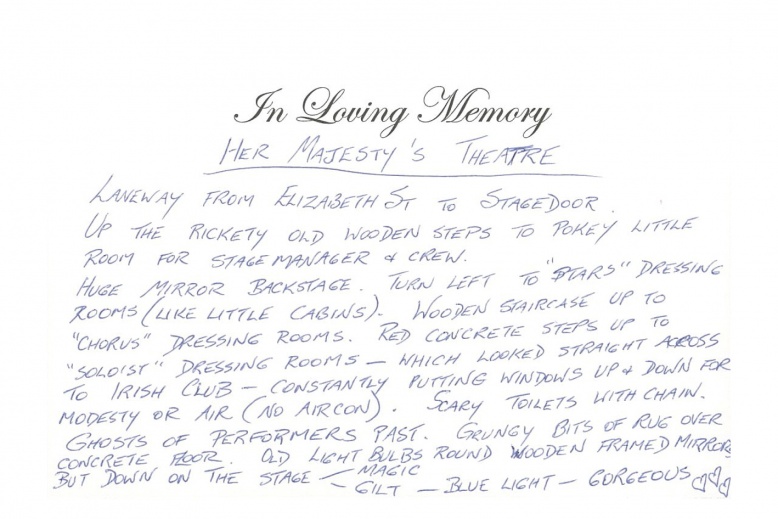 In Loving Memory
HER MAJESTY'S THEATRE
LANEWAY FROM ELIZABETH ST TO STAGEDOOR.
UP THE RICKETY OLD WOODEN STEPS TO POKEY LITTLE
ROOM FOR STAGEMANAGER & CREW.
HUGE MIRROR BACKSTAGE. TURN LEFT TO "STARS" DRESSING
ROOMS (LIKE LITTLE CABINS). WOODEN STAIRCASE UP TO
"CHORUS" DRESSING ROOMS. RED CONCRETE STEPS UP TO
"SOLOIST" DRESSING ROOMS – WHICH LOOKED STRAIGHT ACROSS
TO IRISH CLUB – CONSTANTLY PUTTING WINDOWS UP & DOWN FOR
MODESTY OR AIR (NO AIRCON). SCARY TOILETS WITH CHAIN.
GHOSTS OF PERFORMERS PAST. GRUNGY BITS OF RUG OVER
CONCRETE FLOOR. OLD LIGHT BULBS ROUND WOODEN FRAMED MIRRORS
BUT DOWN ON THE STAGE – MAGIC
– GILT – BLUE LIGHT – GORGEOUS ♡♡♡